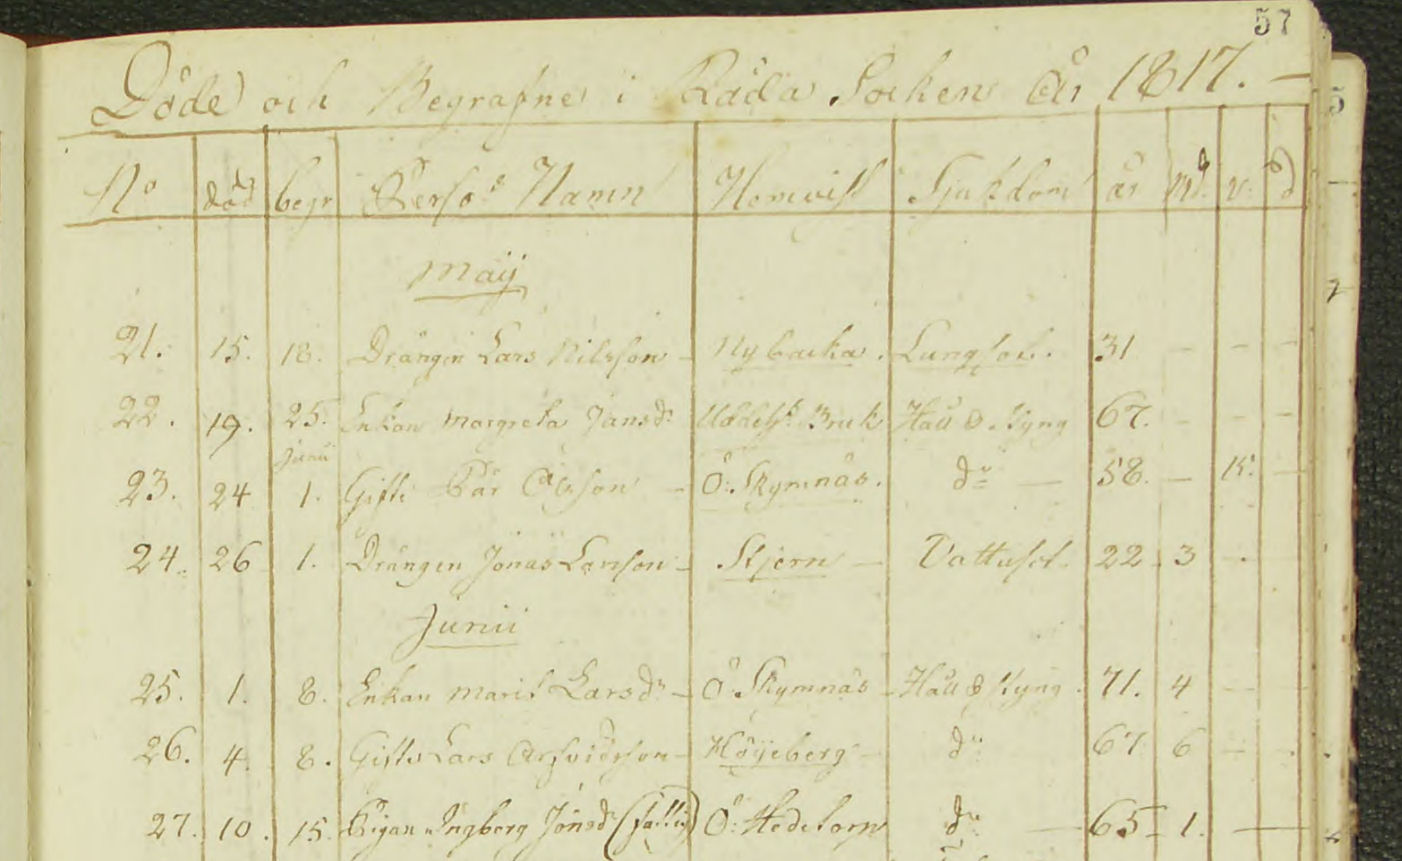 57
Döde och Begrafne i Råda Socken År 1817. —
No död begr Perso: Namn Hemvist Sjukdom år Md. v. d
Maij
21. 15. 18. Drängen Lars Nilsson - Nybacka. Lungsot. 31 - - -
22. 19. 25. Enkan Margreta Jansdr Uddeh: Bruk Håll & Styng 67. - - -
Junii
23. 24 1. Gifte Pär Olsson - Ö: Skymnäs. do — 58. - 15. -
24. 26 1. Drängen Jonas Larsson - Stjern — Vattusot. 22 - 3 -
Junii
25. 1. 8. Enkan Marit Larsdr - Ö Skymnäs - Håll & Styng. 71. 4 - -
26. 4. 8. Gifte Lars Arfvidsson - Höijeberg - do 67 6 - -
27. 10. 15. Pigan Ingborg Jonsdr (fattig) Ö: Hedetorp do — 65 - 1. —